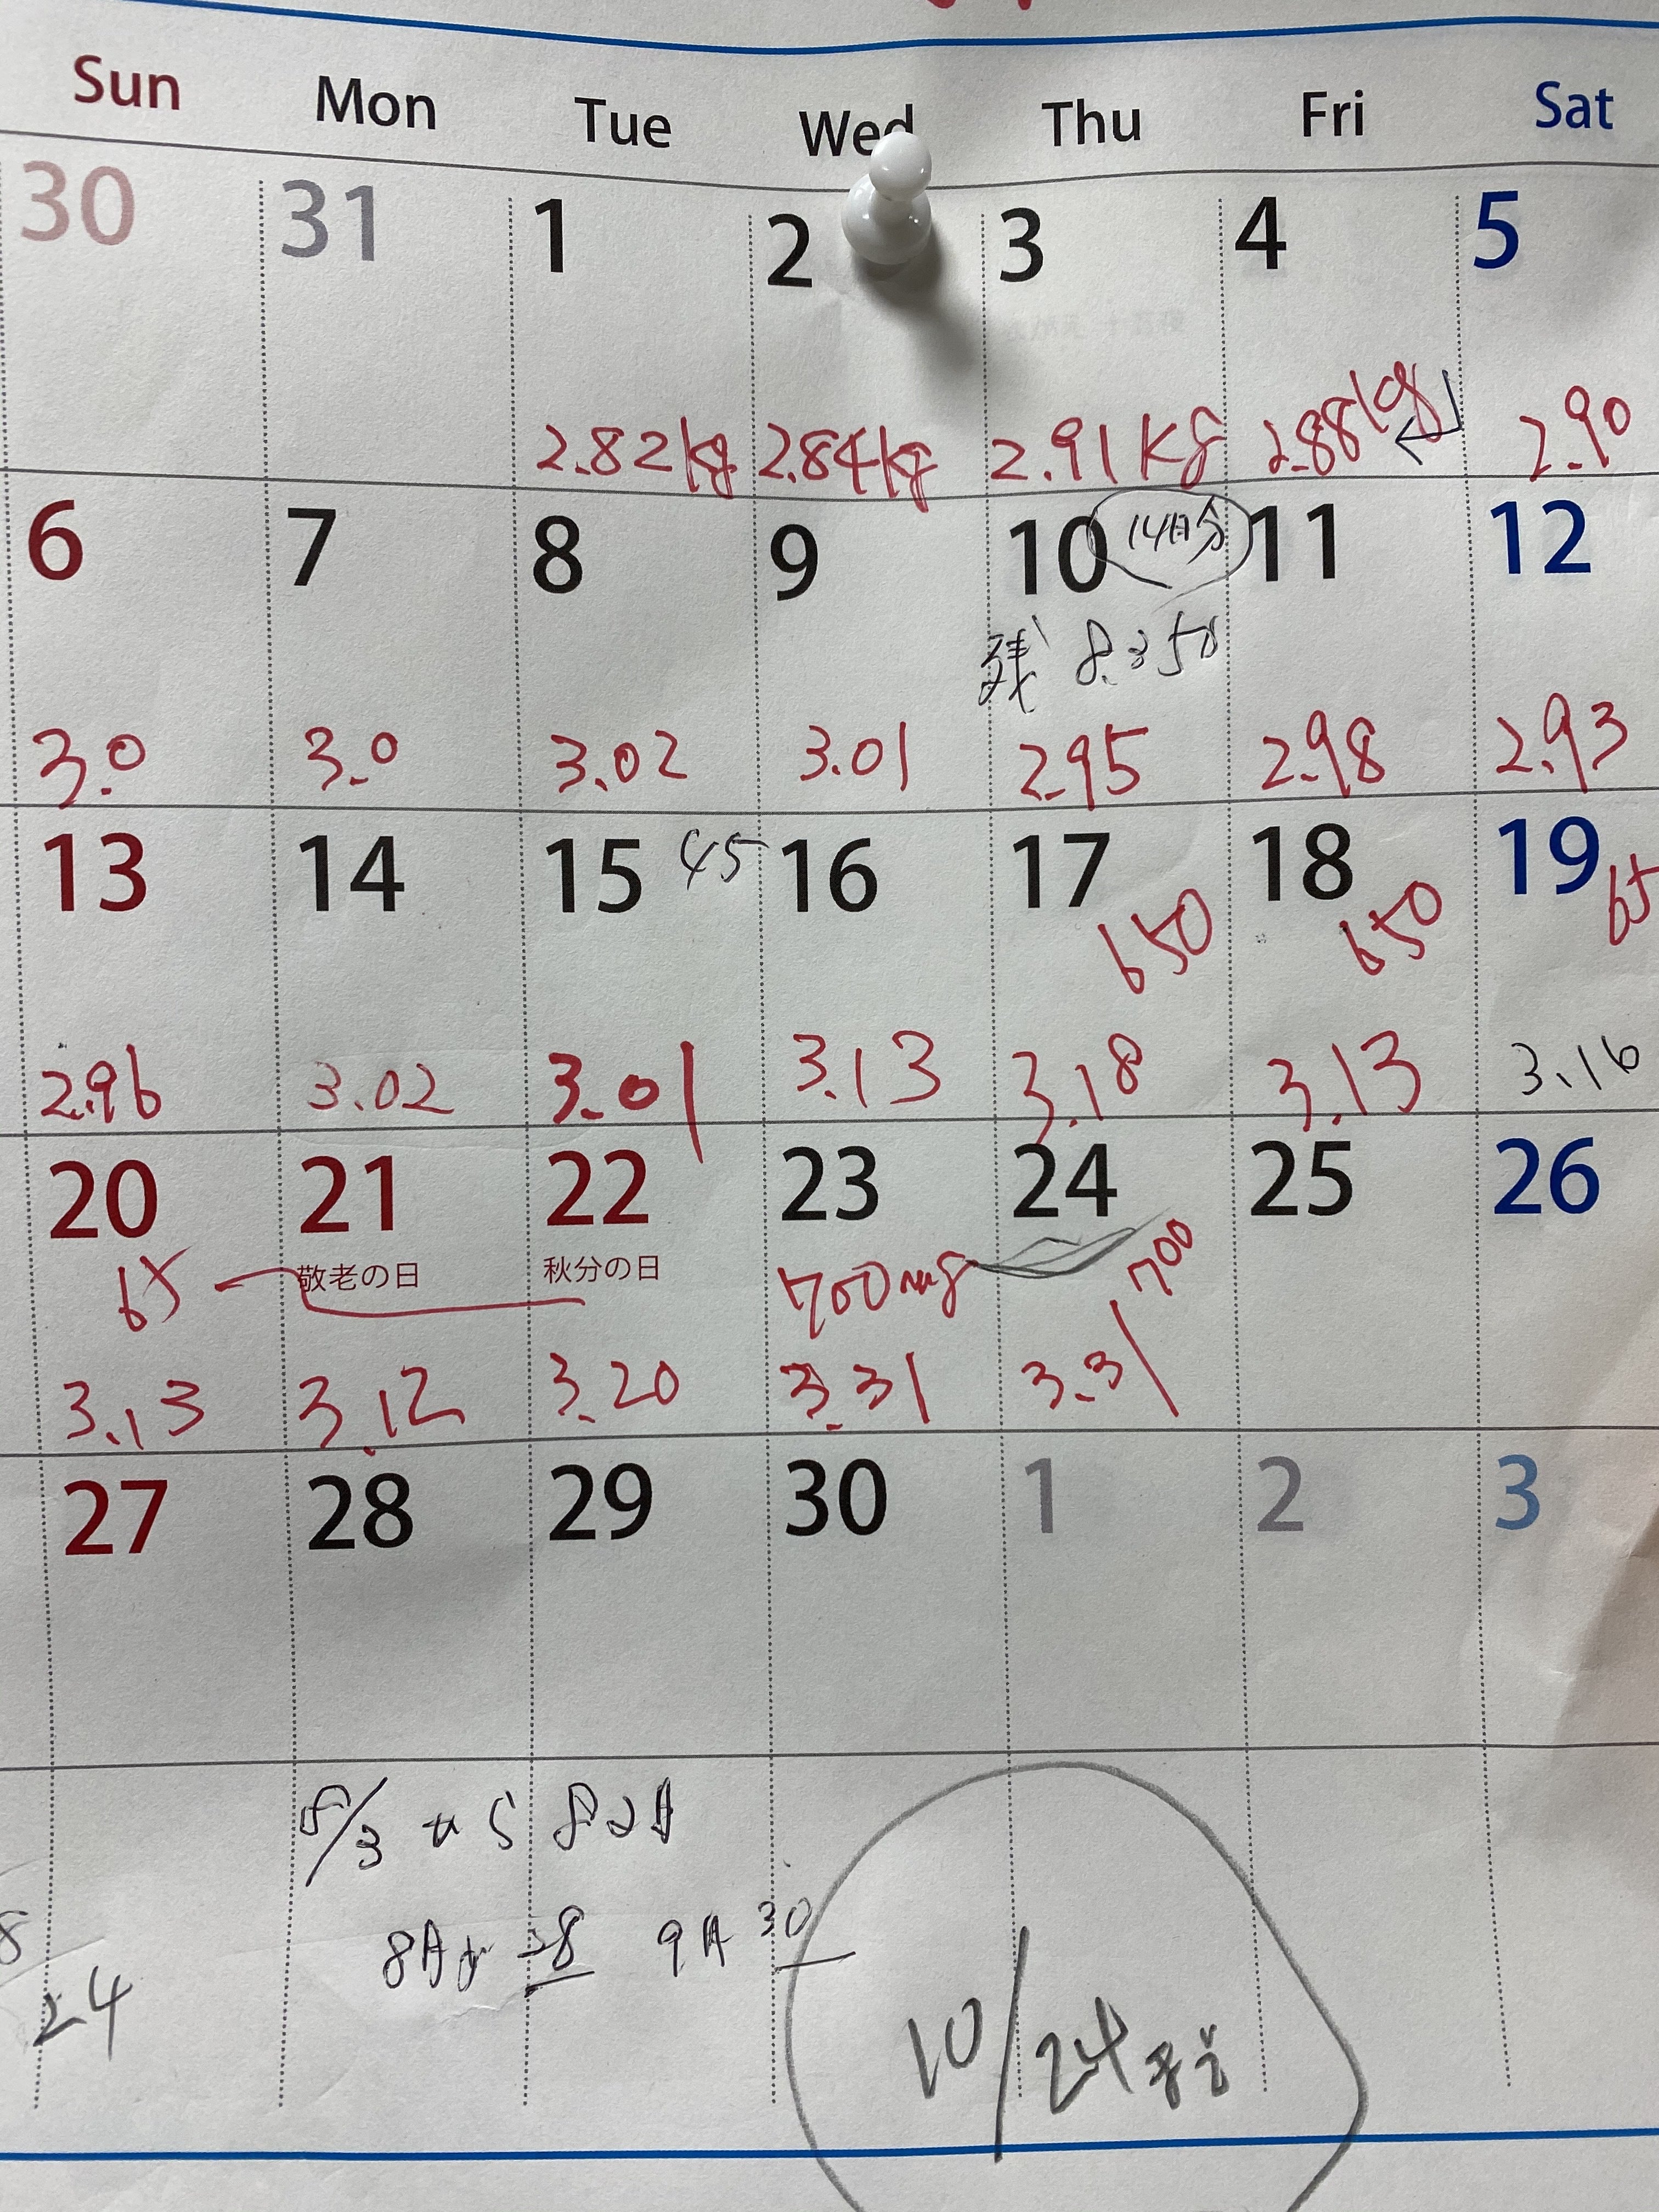 Sun Mon Tue Wed Thu Fri Sat
30 31 1 2 3 4 5
2.82kg 2.84kg 2.91kg 2.88kg 2.90
6 7 8 9 10 14日分 11 12
残 8.350
3.0 3.0 3.02 3.01 2.95 2.98 2.93
13 14 15 45 16 17 18 19
650 650 65
2.96 3.02 3.01 3.13 3.18 3.13 3.16
20 21 22 23 24 25 26
65 敬老の日 秋分の日 700mg 700
3.13 3.12 3.20 3.31 3.31
27 28 29 30 1 2 3
8/3
28 30
24
10/24まで